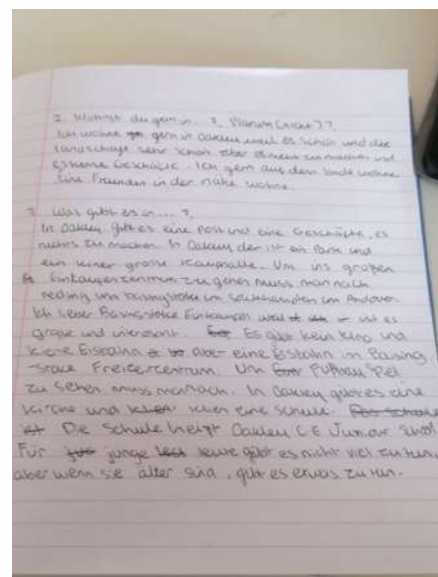 2. Wohnst du gern in ... ?, Warum (nicht)??
Ich wohne gern in Oakley weil es schön und die
landschaft sehr schön aber es zu machen und
es keine Geschäfte. Ich gern auf dem lande wohne
Eine Freunden in der nähe wohne.
3. was gibt es in ... ?
In Oakley gibt es eine Post und eine Geschäfte, es
nichts zu machen. In Oakley der ist ein Park und
ein keiner grosse. Um ins großen
Einkaufszentrum zu gehen muss man nach
reding im Andover.
Ich lieber Basingstoke Einkaufen weil ist es
und Es gibt kein kino und
Eisbahn aber eine Eisbahn in Basing
-stoke Freizeitcentrum. Um Fußball Spiel
zu sehen muss man nach. In Oakley gibt es eine
kirche und eine schule.
Die Schule heißt Oakley C.E Junior
Für junge leute gibt es nicht viel zu tun,
aber wenn sie älter sind, gibt es etwas zu tun.